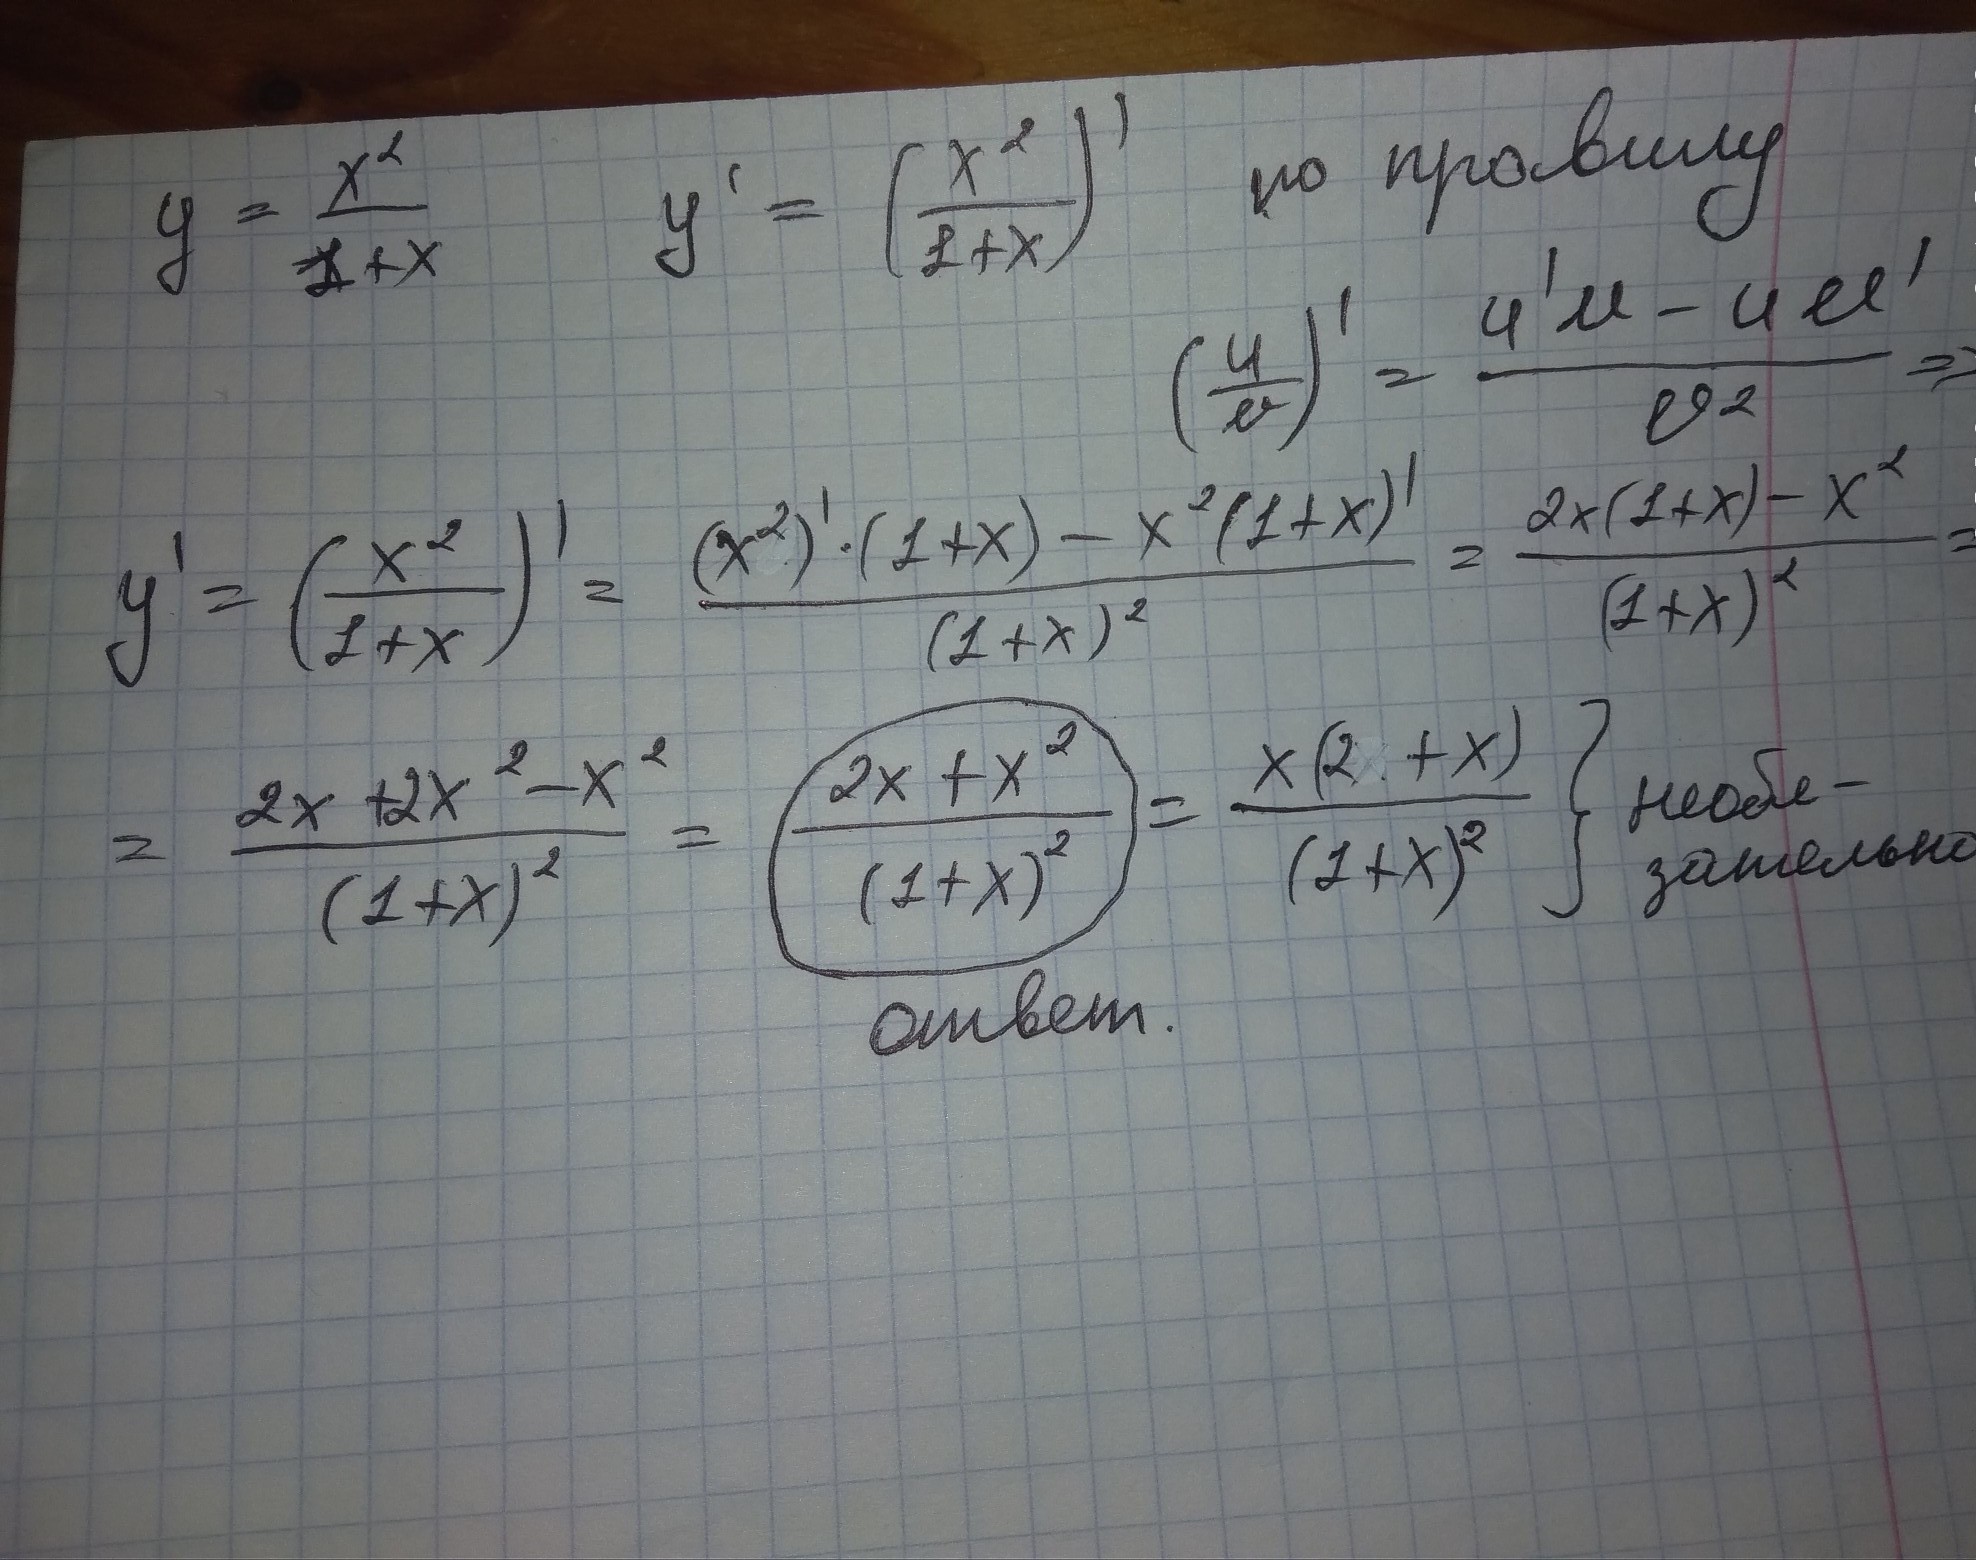 y = x²/(1+x) y' = (x²/(1+x))' по правилу
(u/v)' = (u'v - uv')/v² =>
y' = (x²/(1+x))' = ((x²)'·(1+x) - x²(1+x)')/(1+x)² = (2x(1+x) - x²)/(1+x)² =
= (2x+2x²-x²)/(1+x)² = (2x+x²)/(1+x)² = x(2+x)/(1+x)² } необя-
зательно
ответ.